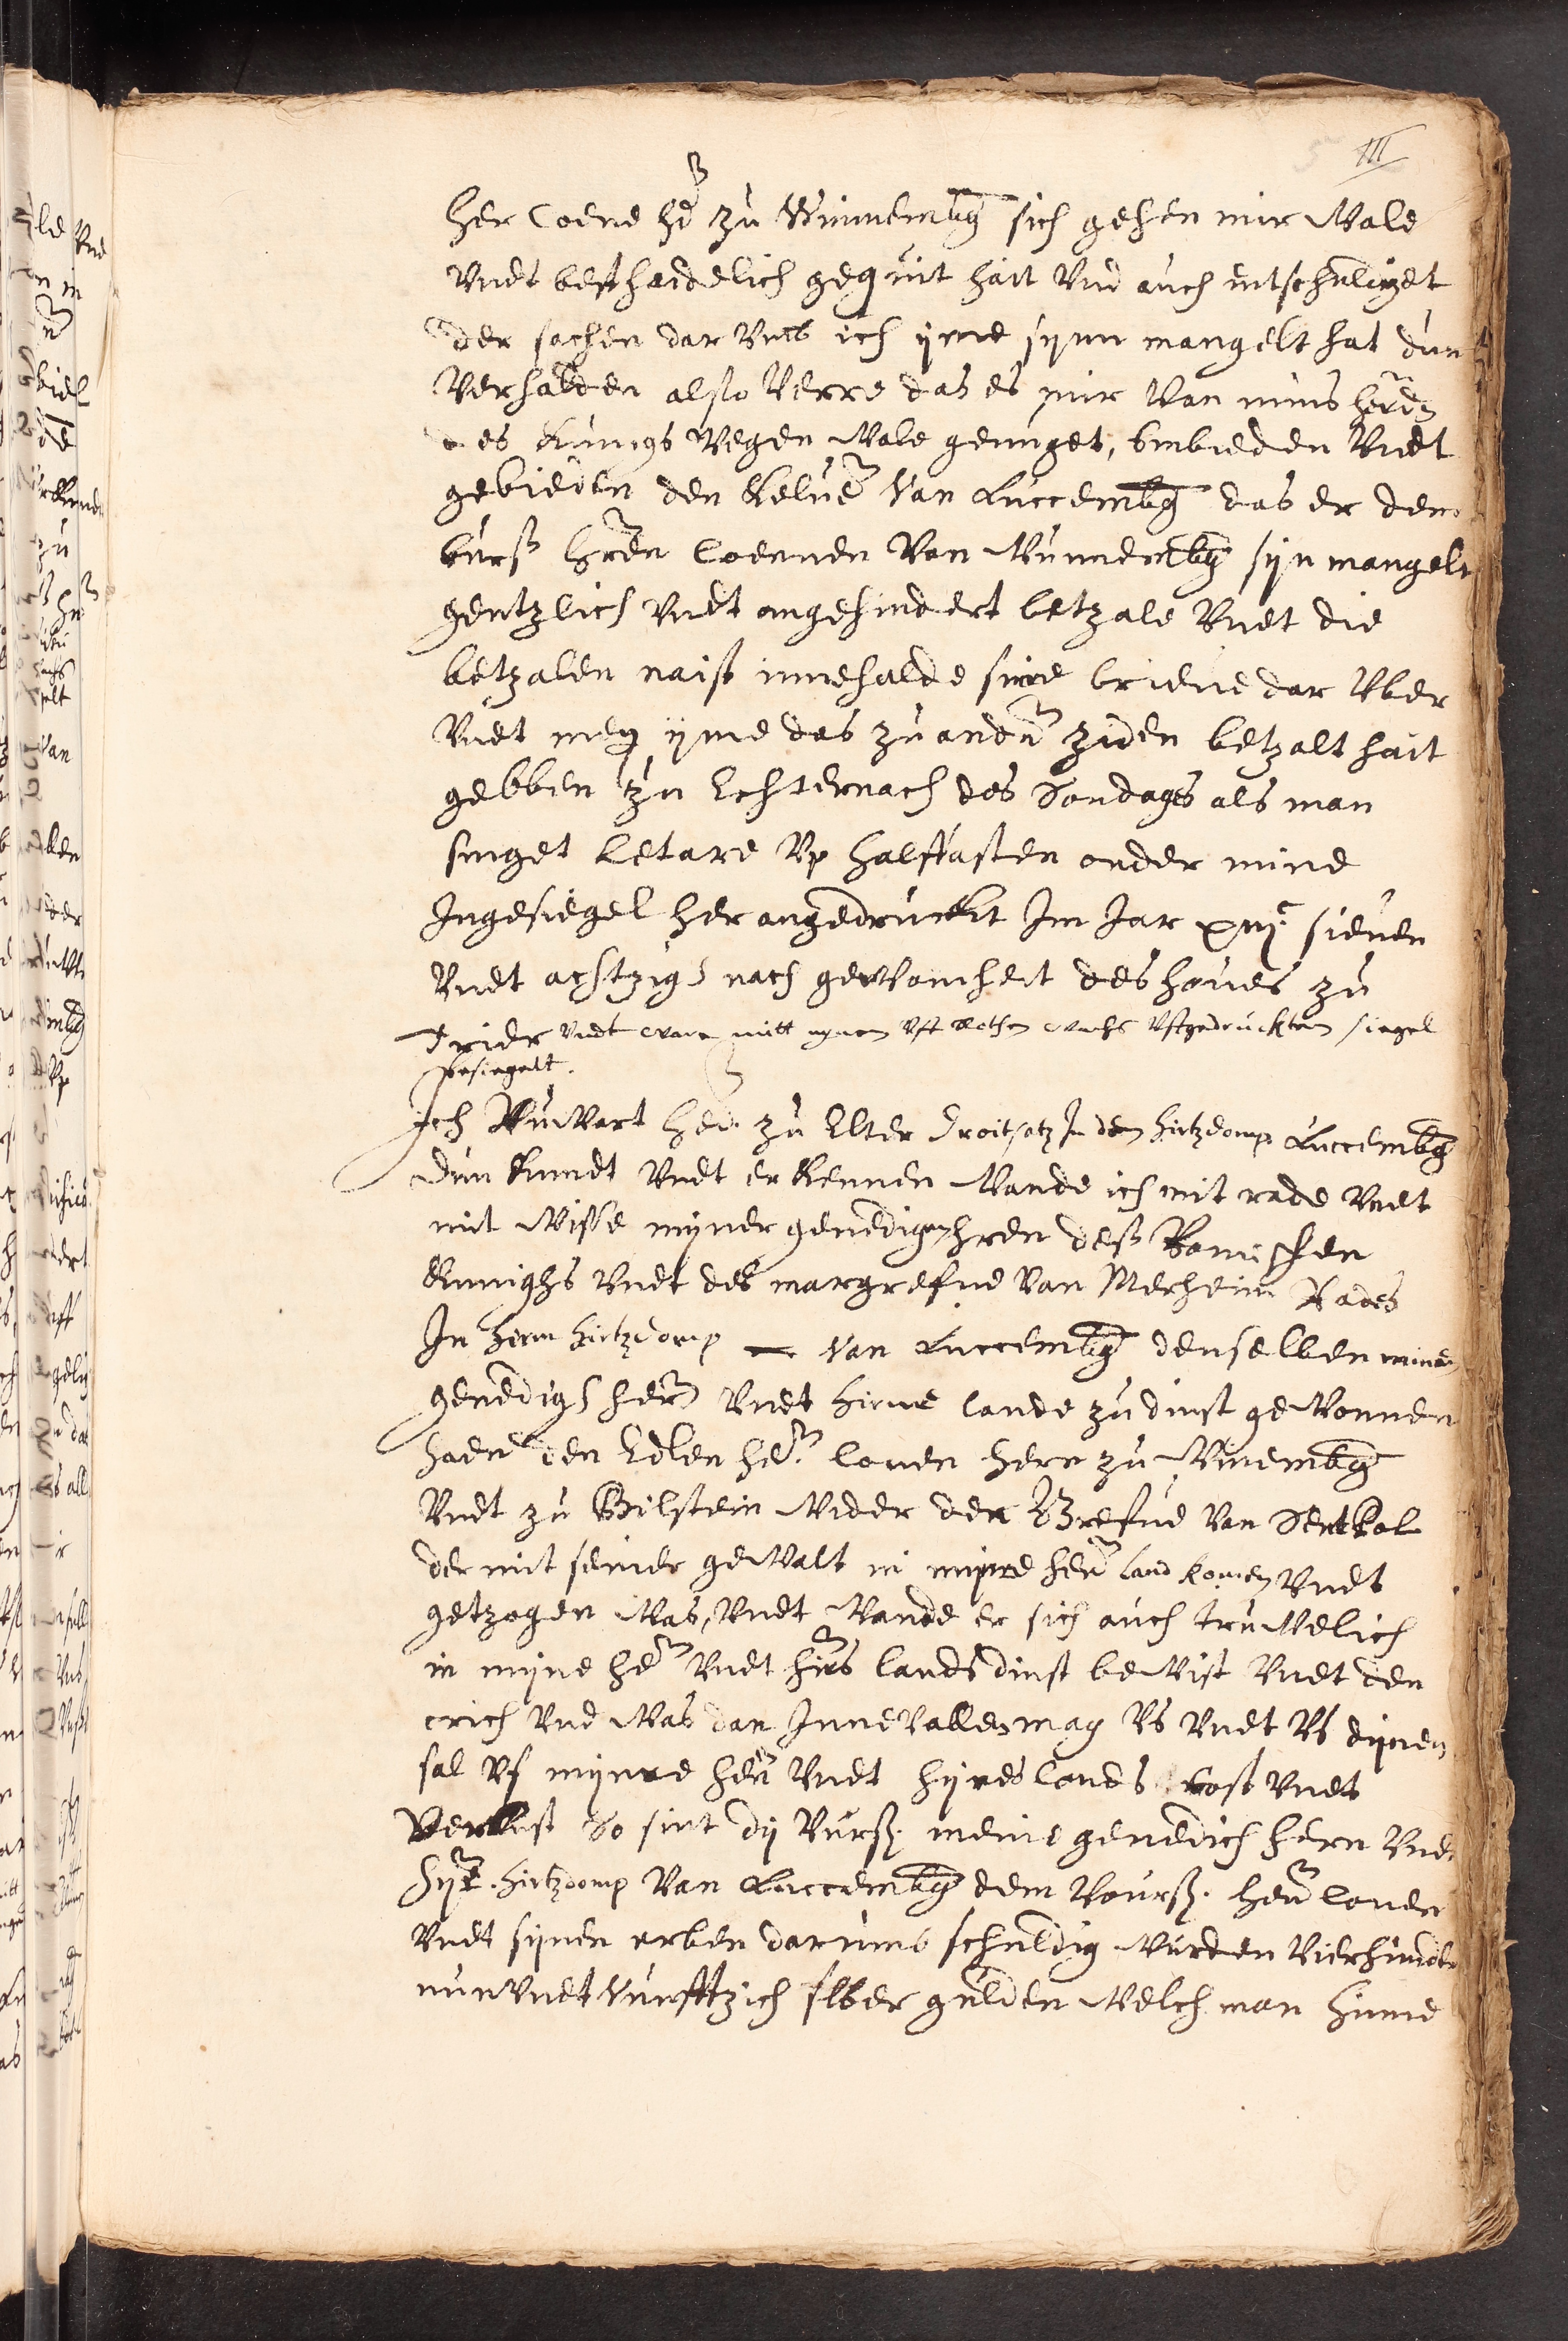 III
Her Coene her zu Winnembg sich gehen mir Wale
Vndt bescheidelich gequit hait Vnd auch entschuliget
der sachen dar Vmb ich yme synn mangelt hat dun
Verhalden also Verre das es mir Van mins heren
des Kunigs Wegen Wale genuget, Embieden Vndt
gebieden den Kelner Van Luccembg das er dem
Vurß hren Coenen Van Wunnembg syn mangelt
gentzlich Vndt ongehindert betzale Vndt die
betzalen naist innehalde sine brieue dar Vber
Vndt men yme das zu andern ziden betzalt hait
gebben zu Echternach des Sondages als man
singet Letare Vp halffasten onder mine
Ingesiegel her angedruckt Im Jar xiijc sieuen
Vndt achtzig nach gewonheit des houes zu
Trier Vndt ware mitt eynem Vff rothem wachs Vffgedrucktem siegel
besiegelt.
Ich Huwart her zu Elter Droitsatz In dem hirtzdomp Luccembg
dun Kundt Vndt erkennen Wande ich mit rade Vndt
mit Wisse myner genedigen hren deß Romischen
Kunighs Vndt des margrefue Van Merhein Rades
In hirm hirtzdomp Van Luccembg denselben minen
genedigen hern Vndt hirme lande zu dinst geWonnen
haen den Edlen hern Conen hern zu Winembg
Vndt zu Bilstein Wider den Grefue Van Sentpol
der mit seiner geWalt in mynre hern land komen Vndt
getzogen Was, Vndt Wande er sich auch truWelich
in myne hern Vndt hirs lands dinst beWist Vndt den
crich Vnd Was dan InneVallen mag Vs Vndt Vs dynen
sal Vf mynre hern Vndt hyres lands Cost Vndt
Verlust So sint dy Vurß. meine genedich hern Vndt
hyr. hirtzdomp Van Luccembg dem Vourß. hern Conen
Vndt synen erben darumb schuldig Wurden Vierhundert
nun Vndt Vunfftzich suber gulden Welch man hinne